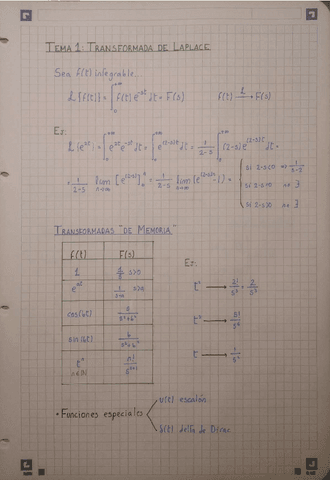 TEMA 1: TRANSFORMADA DE LAPLACE
Sea f(t) integrable.
L{f(t)} = ∫₀^{+∞} f(t) e^{-st} dt = F(s)    f(t) —L→ F(s)
Ex:
L{e^{2t}} = ∫₀^{+∞} e^{2t} e^{-st} dt = ∫₀^{+∞} e^{(2-s)t} dt = 1/(2-s) ∫₀^{+∞} (2-s) e^{(2-s)t} dt =
= 1/(2-s) lim [e^{(2-s)t}]₀ⁿ = 1/(2-s) lim (e^{(2-s)n} - 1) =
si 2-s<0
si 2-s=0
si 2-s>0
TRANSFORMADAS "DE MEMORIA"
f(t) F(s)
1 1/s s>0
e^{at} 1/(s-a) s>a
cos(bt) s/(s²+b²)
sin(bt) b/(s²+b²)
tⁿ n!/s^{n+1}
Ex:
t² → 2!/s³ = 2/s³
→ 8!/s⁹
t → 1/s²
• Funciones especiales
u(t) escalón
δ(t) delta de Dirac